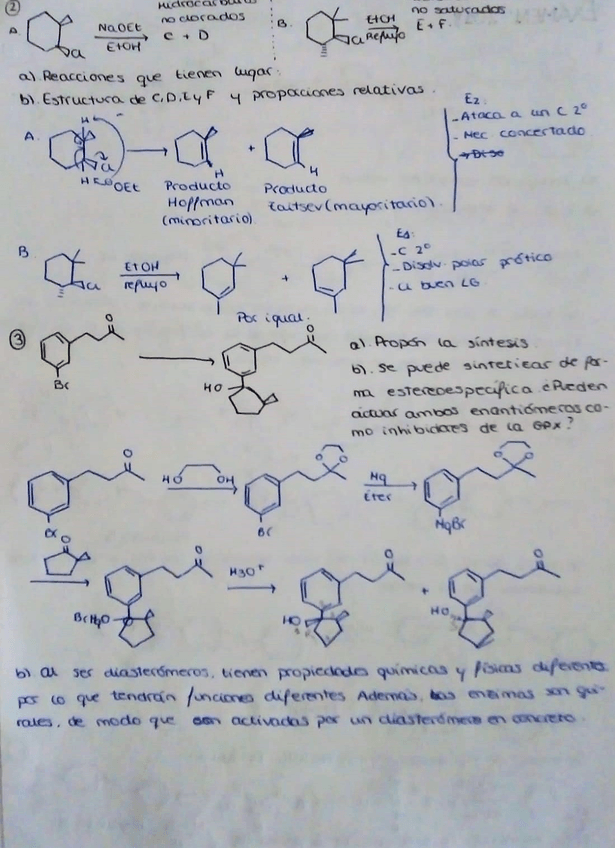 ② Hidrocarburos no saturados
A. NaOEt no clorados B. EtOH E + F.
Cl EtOH C + D Cl Reflujo
a) Reacciones que tienen lugar.
b). Estructura de C, D, E y F y proporciones relativas.
A. H
Cl
H EtO OEt
H H
+
Producto Producto
Hoffman Zaitsev (mayoritario).
(minoritario)
E2:
- Ataca a un C 2º
- Mec concertado
B. EtOH
Cl reflujo +
Por igual.
E1:
- C 2º
- Disolv. polar prótico
- Cl buen LG
③ O O
Br HO
a). Propón la síntesis
b). Se puede sintetizar de for-
ma estereoespecífica ¿Pueden
actuar ambos enantiómeros co-
mo inhibidores de la GPx?
O HO OH O O Mg O O
Br Br Éter MgBr
O O H3O+ O O
HO + HO
b) Al ser diasterómeros, tienen propiedades químicas y físicas diferentes
por lo que tendrán funciones diferentes. Además, las enzimas son qui-
rales, de modo que son activadas por un diasterómero en concreto.